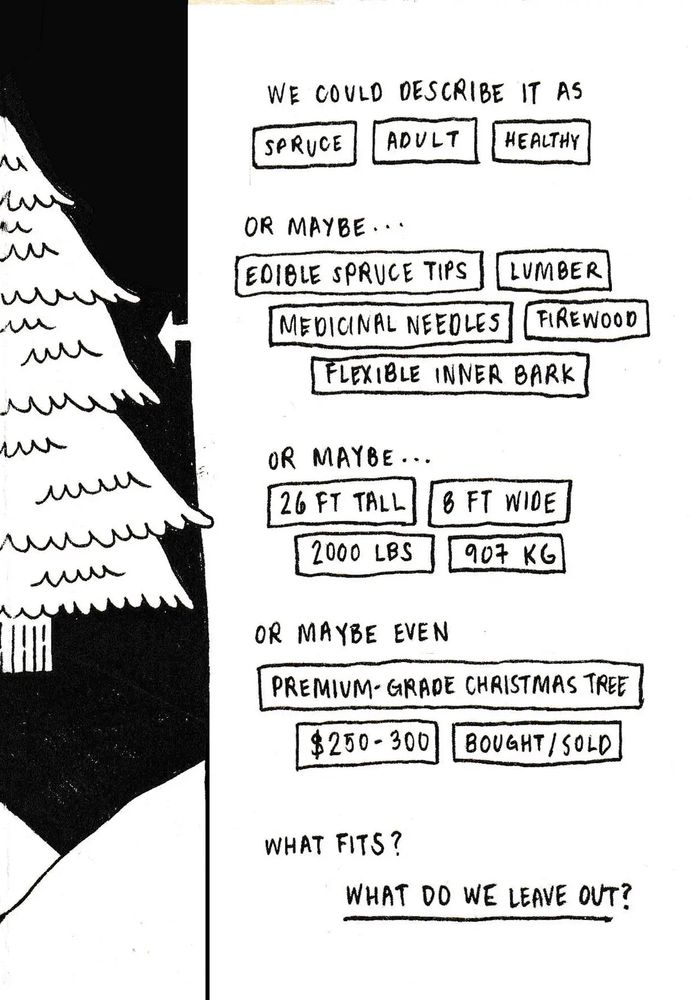 WE COULD DESCRIBE IT AS
SPRUCE ADULT HEALTHY
OR MAYBE...
EDIBLE SPRUCE TIPS LUMBER
MEDICINAL NEEDLES FIREWOOD
FLEXIBLE INNER BARK
OR MAYBE...
26 FT TALL 8 FT WIDE
2000 LBS 907 KG
OR MAYBE EVEN
PREMIUM-GRADE CHRISTMAS TREE
$250-300 BOUGHT/SOLD
WHAT FITS?
WHAT DO WE LEAVE OUT?